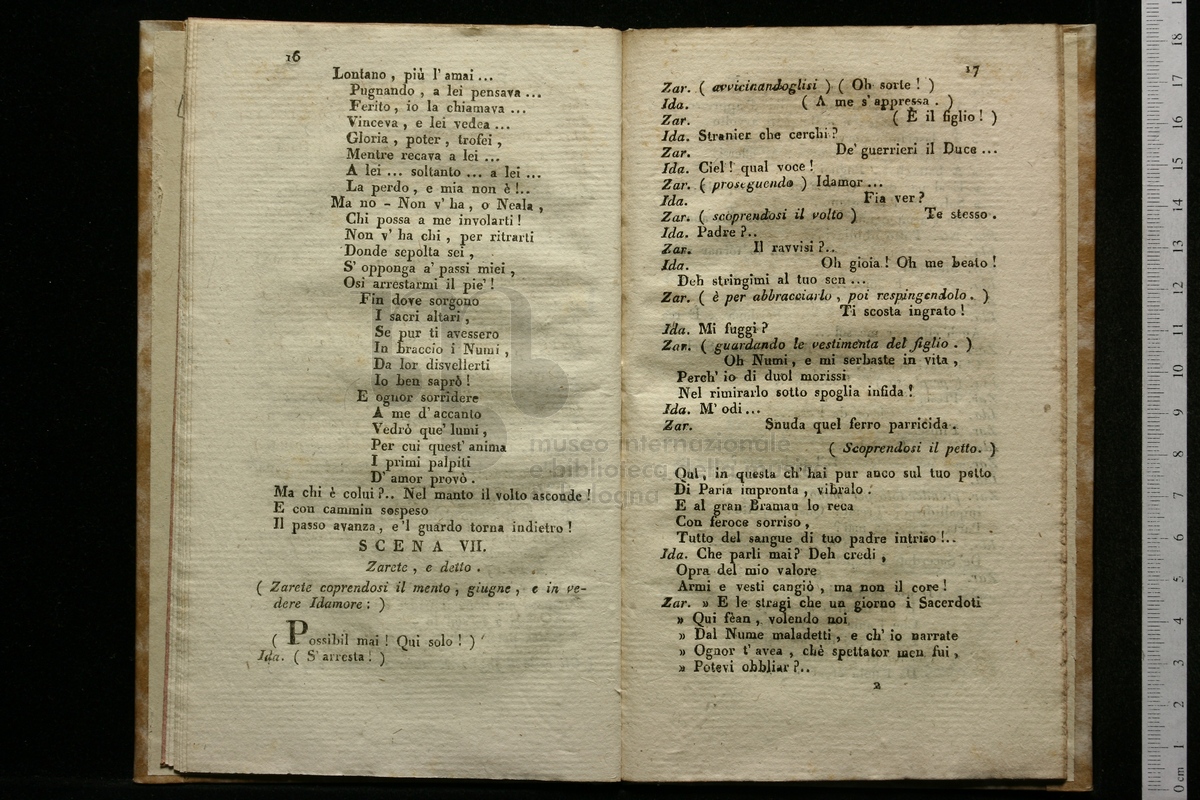 16
Lontano, più l'amai...
Pugnando, a lei pensava...
Ferito, io la chiamava...
Vinceva, e lei vedea...
Gloria, poter, trofei,
Mentre recava a lei...
A lei... soltanto... a lei...
La perdo, e mia non è!..
Ma no - Non v' ha, o Neala,
Chi possa a me involarti!
Non v' ha chi, per ritrarti
Donde sepolta sei,
S' opponga a' passi miei,
Osi arrestarmi il pie'!
Fin dove sorgono
I sacri altari,
Se pur ti avessero
In braccio i Numi,
Da lor disvellerti
Io ben saprò!
E ognor sorridere
A me d'accanto
Vedrò que' lumi,
Per cui quest' anima
I primi palpiti
D' amor provò.
Ma chi è colui?.. Nel manto il volto asconde!
E con cammin sospeso
Il passo avanza, e'l guardo torna indietro!
SCENA VII.
Zarete, e detto.
( Zarete coprendosi il mento, giugne, e in ve-
dere Idamore: )
( Possibil mai! Qui solo! )
Ida. ( S'arresta! )
17
Zar. ( avvicinandoglisi ) ( Oh sorte! )
Ida. ( A me s'appressa. )
Zar. ( È il figlio! )
Ida. Stranier che cerchi?
Zar. De' guerrieri il Duce...
Ida. Ciel! qual voce!
Zar. ( proseguendo ) Idamor...
Ida. Fia ver?
Zar. ( scoprendosi il volto ) Te stesso.
Ida. Padre?..
Zar. Il ravvisi?..
Ida. Oh gioia! Oh me beato!
Deh stringimi al tuo sen...
Zar. ( è per abbracciarlo, poi respingendolo. )
Ti scosta ingrato!
Ida. Mi fuggi?
Zar. ( guardando le vestimenta del figlio. )
Oh Numi, e mi serbaste in vita,
Perch' io di duol morissi
Nel rimirarlo sotto spoglia infida!
Ida. M' odi...
Zar. Snuda quel ferro parricida.
( Scoprendosi il petto. )
Qui, in questa ch' hai pur anco sul tuo petto
Di Paria impronta, vibralo:
E al gran Braman lo reca
Con feroce sorriso,
Tutto del sangue di tuo padre intriso!..
Ida. Che parli mai? Deh credi,
Opra del mio valore
Armi e vesti cangiò, ma non il core!
Zar. » E le stragi che un giorno i Sacerdoti
» Qui fèan, volendo noi
» Dal Nume maladetti, e ch' io narrate
» Ognor t' avea, chè spettator men fui,
» Potevi obbliar?..
2
museo internazionale
e biblioteca della
bologna
0 cm 1 2 3 4 5 6 7 8 9 10 11 12 13 14 15 16 17 18